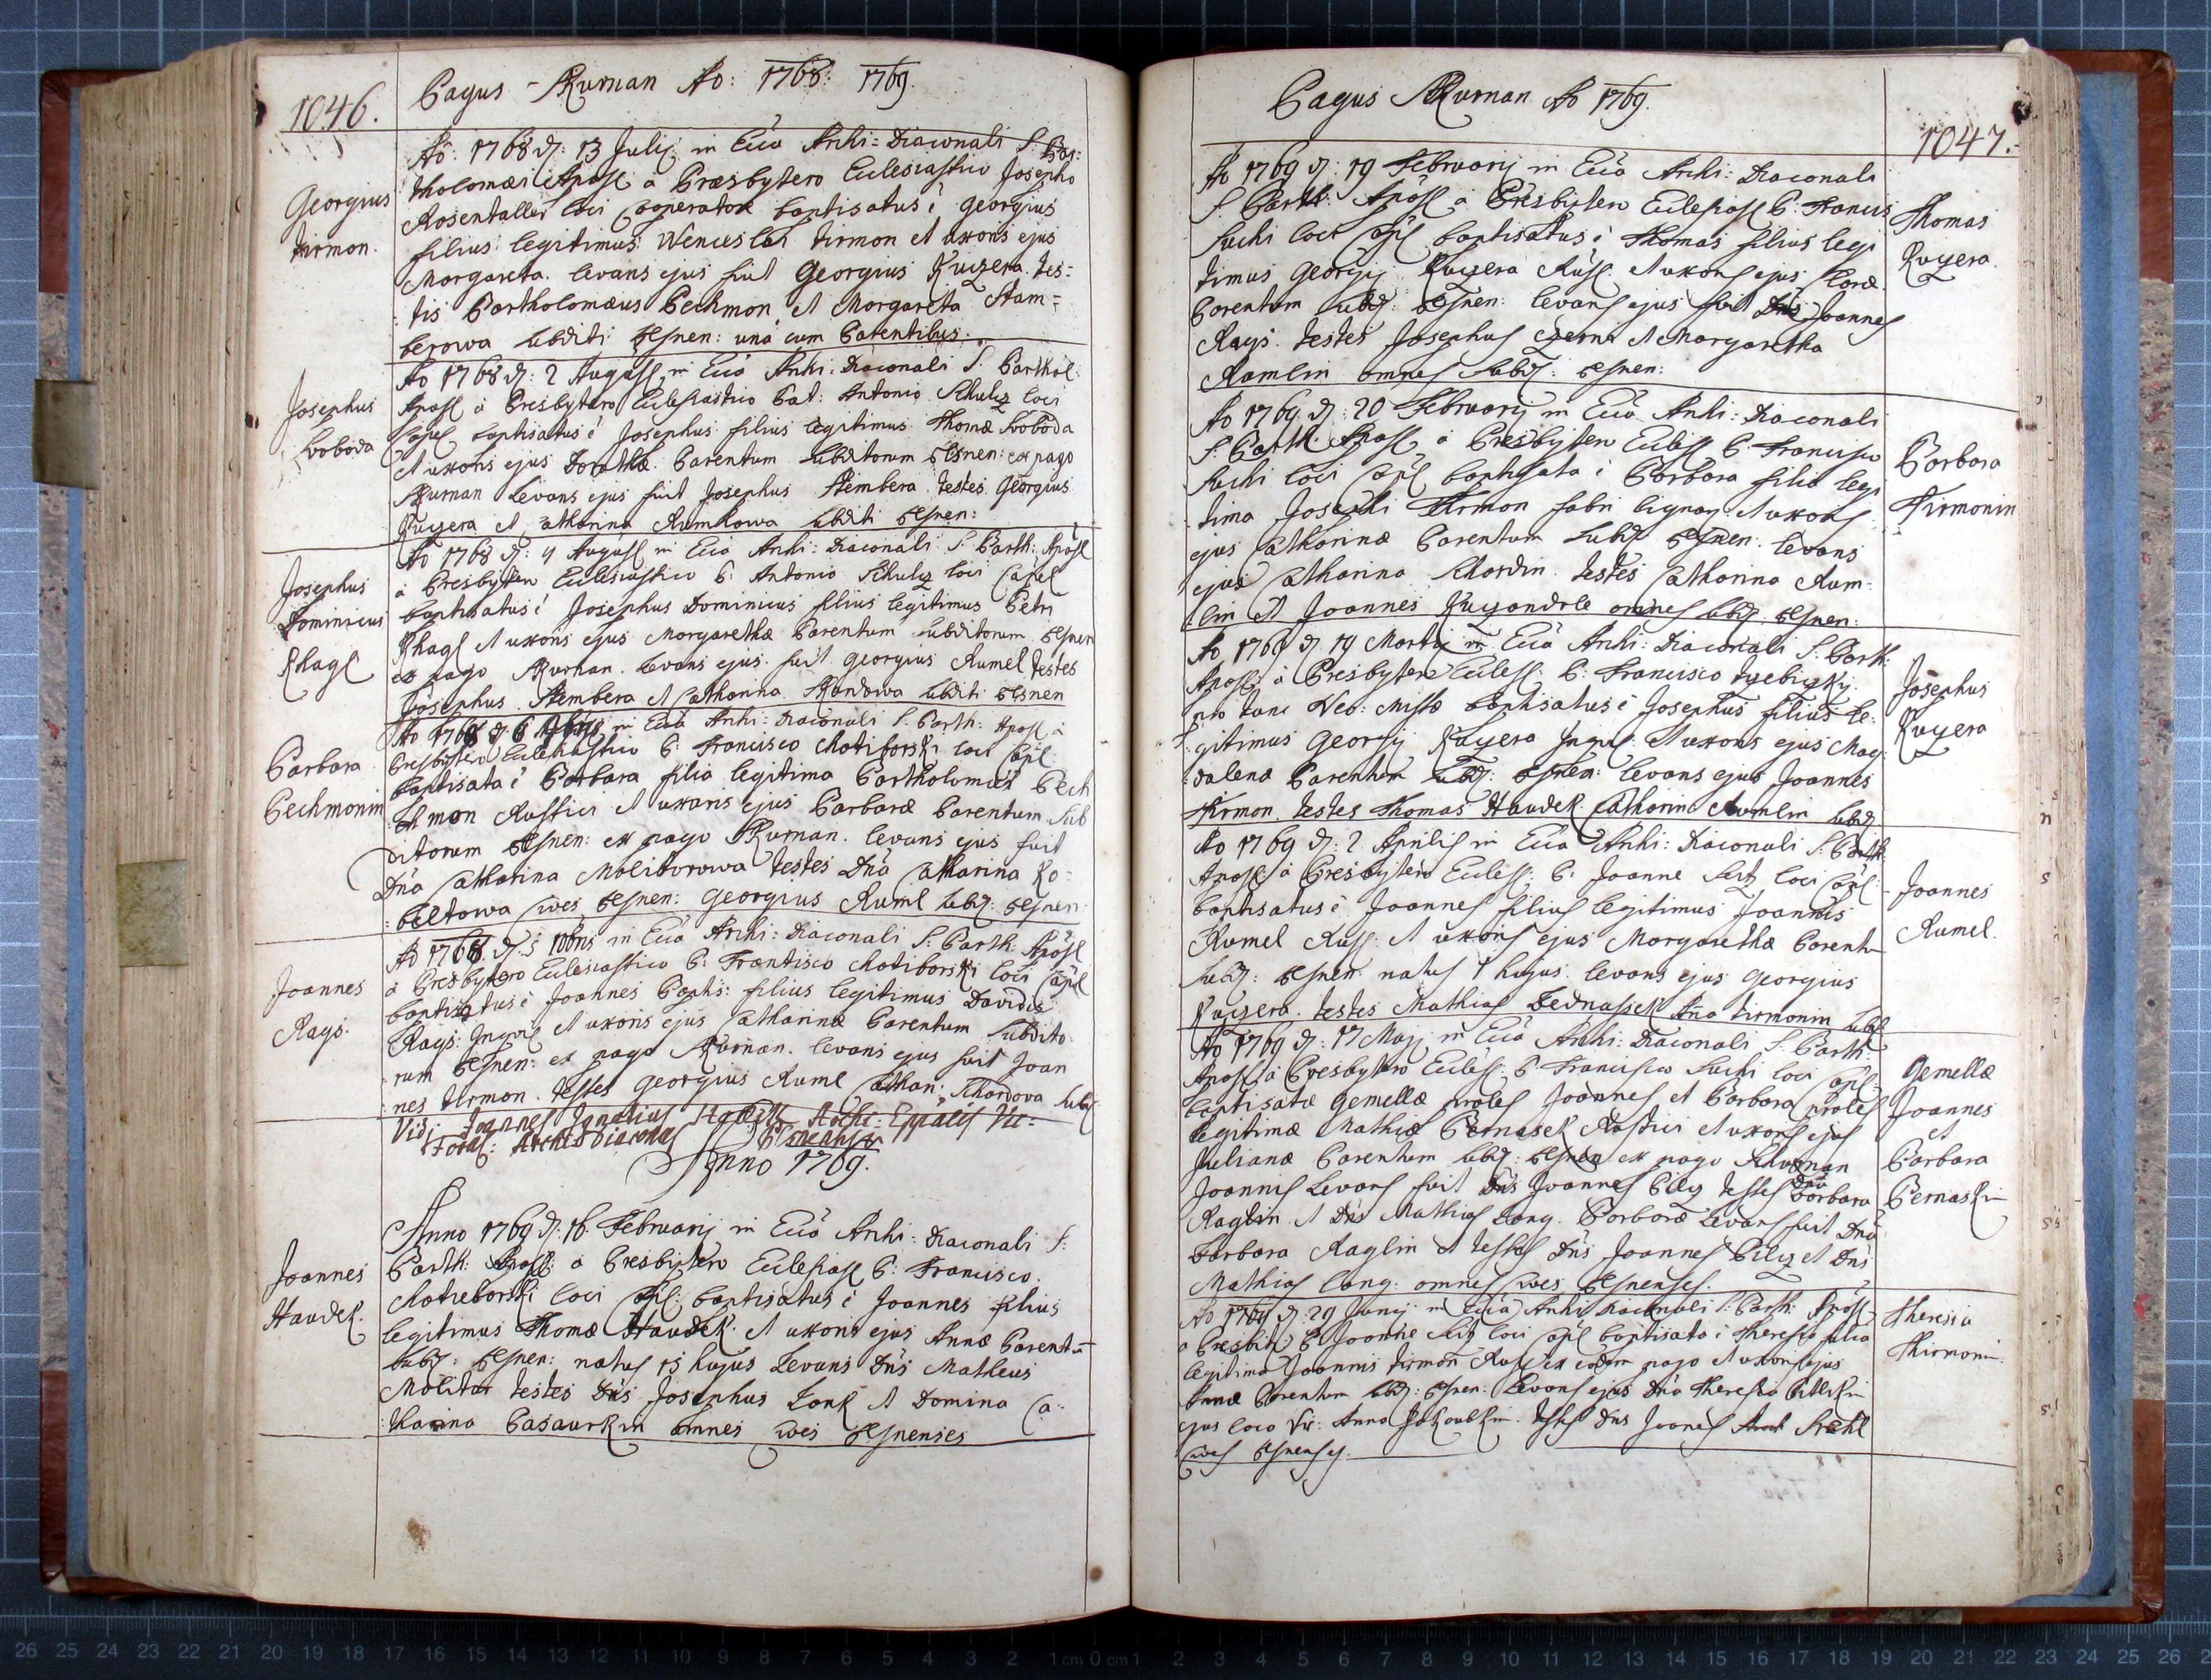 1046.
Pagus Skurnan Ao: 1768: 1769.
Georgius
Tirmon.
Ao: 1768 d: 13 Julij in Eccâ Archi=Diaconali S: Bar=
tholomæi Apost à Præsbytero Ecclesiastico Josepho
Rosentaller loci cooperatore baptisatus è Georgius
filius legitimus Wenceslai Tirmon et uxoris ejus
Margareta. levans ejus fuit Georgius Kuczera. Tes=
tis Bartholomæus Pechmon et Margareta Stam=
berowa subditi Plsnen: unà cum Parentibus.
Josephus
Swoboda
Ao 1768 d: 2 August in Eccâ Archi: Diaconali S: Barthol:
Apost à Presbytero Ecclesiastico Pat: Antonio Schulz loci
Capel baptisatus è Josephus filius legitimus Thomæ Swoboda
et uxoris ejus Dorothæ Parentum subditorum Plsnen: ex pago
Skurnan Levans ejus fuit Josephus Stembera. testes Georgius
Kuczera et Catharina Rumlowa subditi Plsnen:
Josephus
Dominicus
Khagl
Ao 1768 d: 4 August in Eccâ Archi: Diaconali S: Barth: Apost
à Presbytero Ecclesiastico P: Antonio Schulz loci Capel
baptisatus è Josephus Dominicus filius legitimus Petri
Khagl et uxoris ejus Margarethæ Parentum subditorum Plsnen
ex pago Skurnan. Levans ejus fuit Georgius Rumel testes
Josephus Stembera et Catharina subditi Plsnen
Barbara
Pechmonin
Ao 1768 d: 6 9bris in Eccâ Archi: Diaconali S: Barth: Apost à
Presbytero Ecclesiastico P: Francisco Chotiborski loci Capl
baptisata è Barbara filia legitima Bartholomæi Pech
mon Rustici et uxoris ejus Barbaræ Parentum Sub
ditorum Plsnen: ex pago Skurnan. levans ejus fuit
Dna Catharina Molitorowa testes Dna Catharina Ko=
beltowa cives Plsnen: Georgius Ruml subd: Plsnen:
Joannes
Rays.
Ao 1768. d: 5 10bris in Eccâ Archi: Diaconali S: Barth: Apost
à Presbytero Ecclesiastico P: Francisco Chotiborski loci Capl
baptisatus è Joannes Bapts: filius legitimus Davidis
Rays: Inquil et uxoris ejus Catharinæ Parentum subdito
rum Plsnen: ex pago Skurnan. levans ejus fuit Joan
nes Tirmon. testes Georgius Ruml Cathar: Skordova subd
Vidi Joannes Ignatius Archi-Eppalis Vic=
Foran: Archi Diaconus Plsnensis
Anno 1769.
Joannes
Haudek.
Anno 1769 d: 16 Februarij in Eccâ Archi: Diaconali S:
Barth: Apost: à Presbytero Ecclesiast P: Francisco
Chotieborski loci Capl: baptisatus è Joannes filius
legitimus Thomæ Haudek et uxoris ejus Annæ Parentu
subd: Plsnen: natus 15 hujus Levans Dns Matheus
Molitor testes Dns Josephus Lonk et Domina Ca=
tharina Casaurkin omnes cives Plsnenses
Pagus Skurnan Ao 1769.
1047.
Ao 1769 d: 19 Februarij in Eccâ Archi: Diaconali
S: Barth: Apost à Presbitero Ecclesiast P: Francis
Suchi loci Capl baptisatus è Thomas filius legi
timus Georgij Kuczera Rust. et uxoris ejus
Parentum subd: Plsnen: levans ejus fuit Dns Joannes
Rays. testes Josephus Czerna et Margaretha
Rumlin omnes subd: Plsnen:
Thomas
Kuczera.
Ao 1769 d: 20 Februarij in Eccâ Archi: Diaconali
S: Barth Apost à Presbytero Eccless P: Francisco
Suchi loci Capl baptisata è Barbara filia legi
tima Josephi Tirmon fabri lignar et uxoris
ejus Catharinæ Parentum subd Plsnen: levans
ejus Catharina Skordin. testes Catharina Rum=
lin et Joannes omnes subd Plsnen:
Barbora
Tirmonin
Ao 1769 d 19 Martij in Eccâ Archi: Diaconali S: Barth:
Apost: à Presbytero Eccless: P: Francisco
pro tunc Neo: Mistæ baptisatus è Josephus filius le=
gitimus Georgij Kuczera Inquil et uxoris ejus Mag
dalenæ Parentum subd: Plsnen: levans ejus Joannes
Tirmon. testes Thomas Haudek Catharina Rumlin subd
Josephus
Kuczera
Ao 1769 d: 2 Aprilis in Eccâ Archi: Diaconali S: Barth
Apost: à Presbytero Eccless: P: Joanne loci Capl:
baptisatus è Joannes filius legitimus Joannis
Rumel Rust: et uxoris ejus Margarethæ Parentu
subd: Plsnen: natus 1 hujus. levans ejus Georgius
Kuczera. testes Mathias Jednassek Ana Tirmonin subd
Joannes
Rumel.
Ao 1769 d: 17 Maij in Eccâ Archi: Diaconali S: Barth:
Apost à Presbytero Eccless: P: Francisco Suchi loci Capl=
baptisatæ Gemellæ proles Joannes et Barbora proles
legitimæ Mathiæ Bernasek Rustici et uxoris ejus
Julianæ Parentum subd: Plsnen ex pago Skurnan
Joannis Levans fuit Dns Joannes Pilz testes Dna Barbara
Raglin et Dns Mathias Lang. Barboræ Levans fuit Dna
Barbara Raglin et testes Dns Joannes Pilz et Dns
Mathias Lang: omnes cives Plsnenses.
Gemellæ
Joannes
et
Barbara
Bernaskin
Ao 1769 d: 29 Junij in Eccâ Archi Diaconali S: Barth: Apost
à Presbit: P: Joanne loci Capl baptisata è Theresia filia
legitima Joannis Tirmon Rust ex eodem pago et uxoris ejus
Annæ Parentum subd: Plsnen: Levans ejus Dna Theresia
ejus loco Vic: Anna testes Dns Joanes
cives Plsnenses.
Theresia
Thirmonin.
26 25 24 23 22 21 20 19 18 17 16 15 14 13 12 11 10 9 8 7 6 5 4 3 2 1 cm 0 cm 1 2 3 4 5 6 7 8 9 10 11 12 13 14 15 16 17 18 19 20 21 22 23 24 25 26